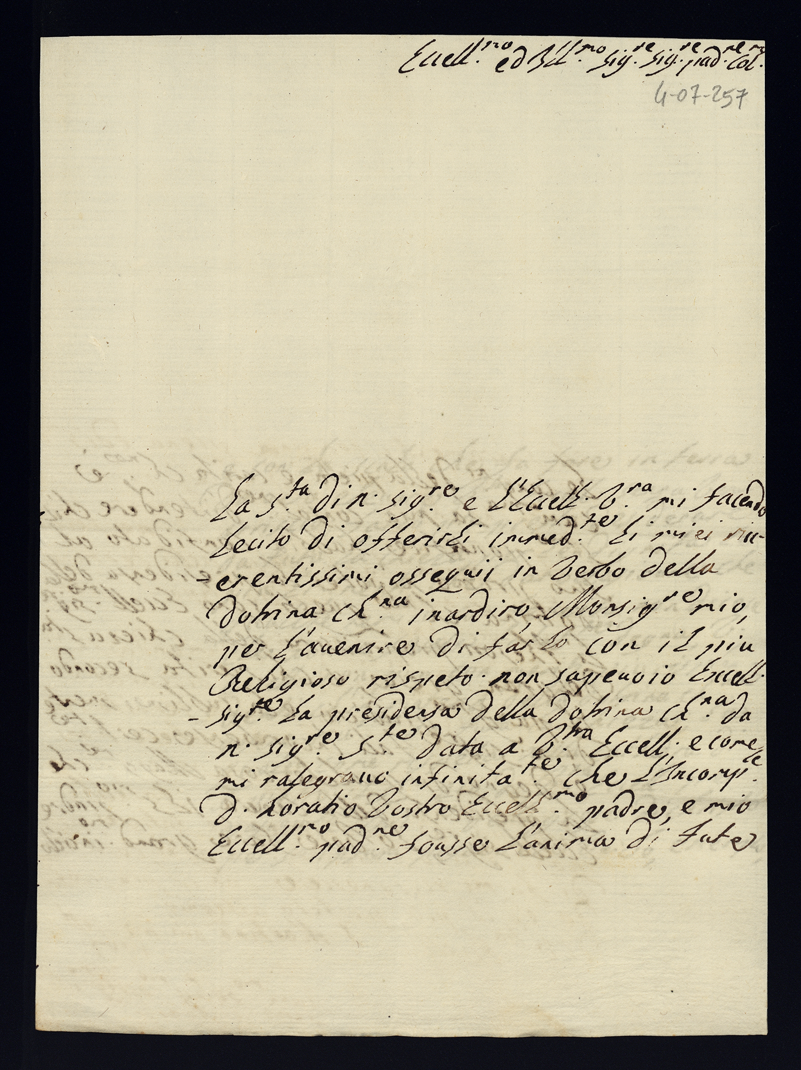 Eccell.mo ed Ill.mo Sig.re Sig.re pad.ne Col.
4-07-257
La S.ta di N. Sig.re e L'Eccell. V.ra mi facendo
Lecito di offerirli immed.te Li miei riu-
-erentissimi ossequii in verbo della
Dotrina Ch.na inardiro, Monsig.re mio,
per L'auenire di farlo con il piu
Religioso rispeto non sapeuoio Eccell.
-Sig.re La presidensa della Dotrina Ch.na da
N. Sig.re S.te data a V.tra Eccell. e come
mi rasegrauo infinita.te che L'Incomp.e
D. Horatio Vostro Eccell.mo padre, e mio
Eccell.mo pad.ne fousse L'anima di tute